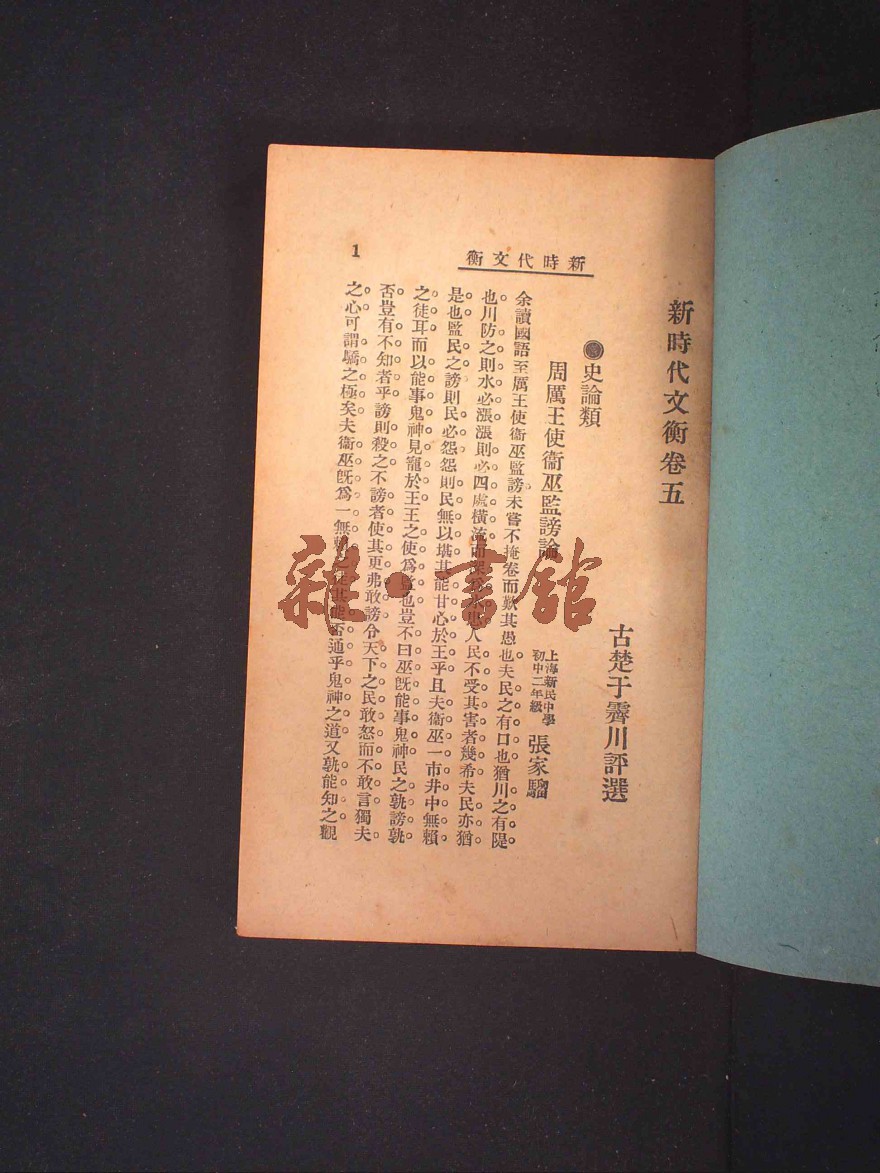 新時代文衡卷五
古楚于霽川評選
●史論類
周厲王使衞巫監謗論
上海新民中學
初中二年級
張家騮
余讀國語至厲王使衞巫監謗未嘗不掩卷而歎其愚也夫民之有口也猶川之有隄
也川防之則水必漲漲則必四處橫流而人民不受其害者幾希夫民亦猶
是也監民之謗則民必怨怨則民無以堪其能甘心於王乎且夫衞巫一市井中無賴
之徒耳而以能事鬼神見寵於王王之使爲監也豈不曰巫旣能事鬼神民之孰謗孰
否豈有不知者乎謗則殺之不謗者使其更弗敢謗令天下之民敢怒而不敢言獨夫
之心可謂驕之極矣夫衞巫旣爲一無賴之徒其能否通乎鬼神之道又孰能知之觀
新時代文衡
1
雜·書館